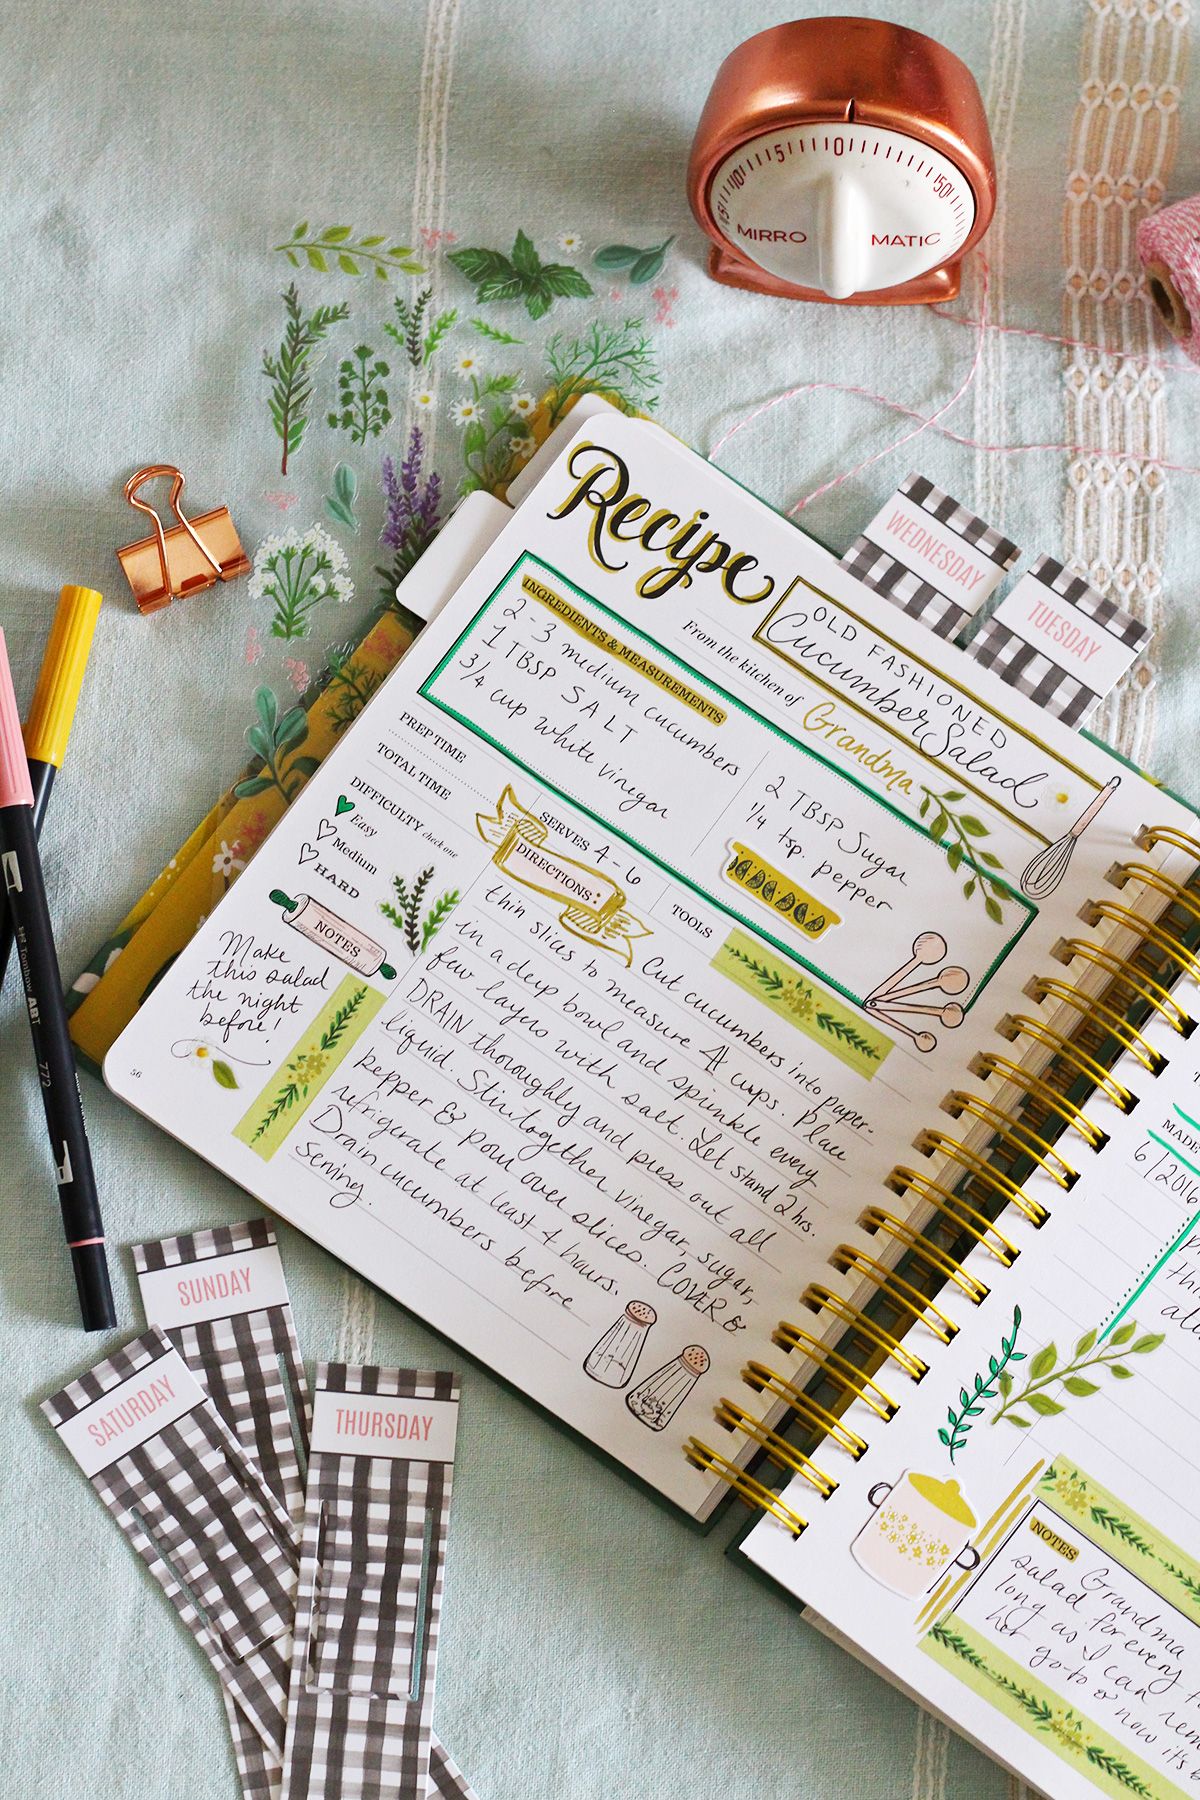 5 0 50
10
45
MIRRO MATIC
WEDNESDAY
TUESDAY
Recipe
OLD FASHIONED
Cucumber Salad
From the kitchen of Grandma
INGREDIENTS & MEASUREMENTS
2-3 medium cucumbers
1 TBSP SALT
3/4 cup white vinegar
2 TBSP Sugar
1/4 tsp. pepper
PREP TIME
TOTAL TIME
DIFFICULTY check one
Easy
Medium
HARD
SERVES 4-6
TOOLS
DIRECTIONS:
Cut cucumbers into paper-
thin slices to measure 4 cups. Place
in a deep bowl and sprinkle every
few layers with salt. Let stand 2 hrs.
DRAIN thoroughly and press out all
liquid. Stir together vinegar, sugar,
pepper & pour over slices. COVER &
refrigerate at least 4 hours.
Drain cucumbers before
serving.
NOTES
Make
this salad
the night
before!
56
MADE
6/2016
NOTES
Grandma
salad for every
long as I can
her go-to &
now it's
Tombow ABT
772
SUNDAY
SATURDAY
THURSDAY